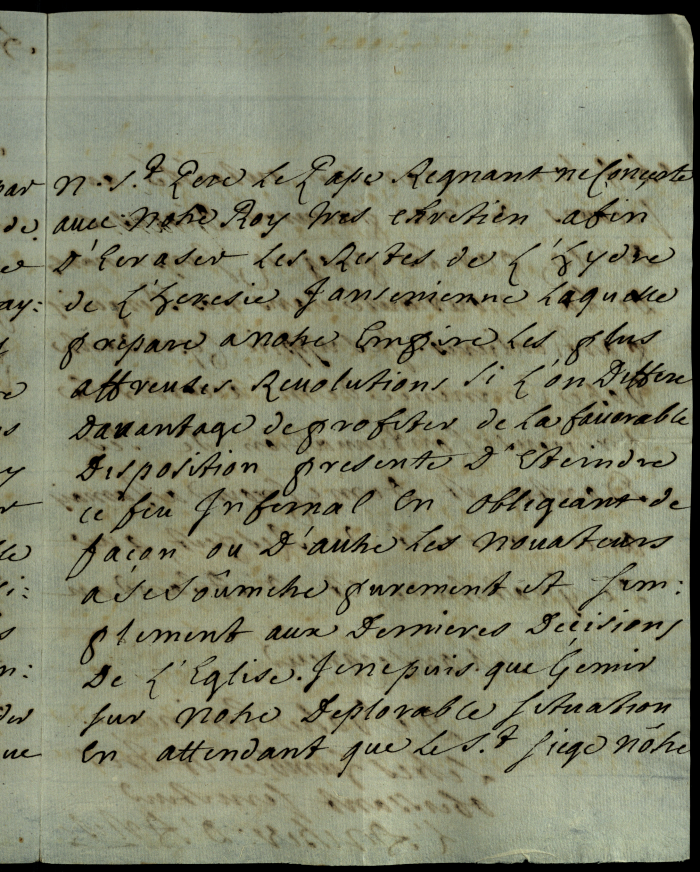 par
de
ay:
n. S.t Pere le Pape Regnant ne Concerte
avec Notre Roy tres chretien afin
D'Ecraser les Restes de L'hydre
de L'heresie Jansenienne laquelle
prepare a notre Empire les plus
affreuses Revolutions si l'on Differe
Davantage de profiter de la favorable
Disposition presente D'Eteindre
ce feu Infernal En obligeant de
façon ou D'autre les Novateurs
a se soûmetre purement et sim:
plement aux Dernieres Décisions
De L'Eglise. Je ne puis que Gemir
sur Notre Deplorable situation
En attendant que le S.t siege nôtre